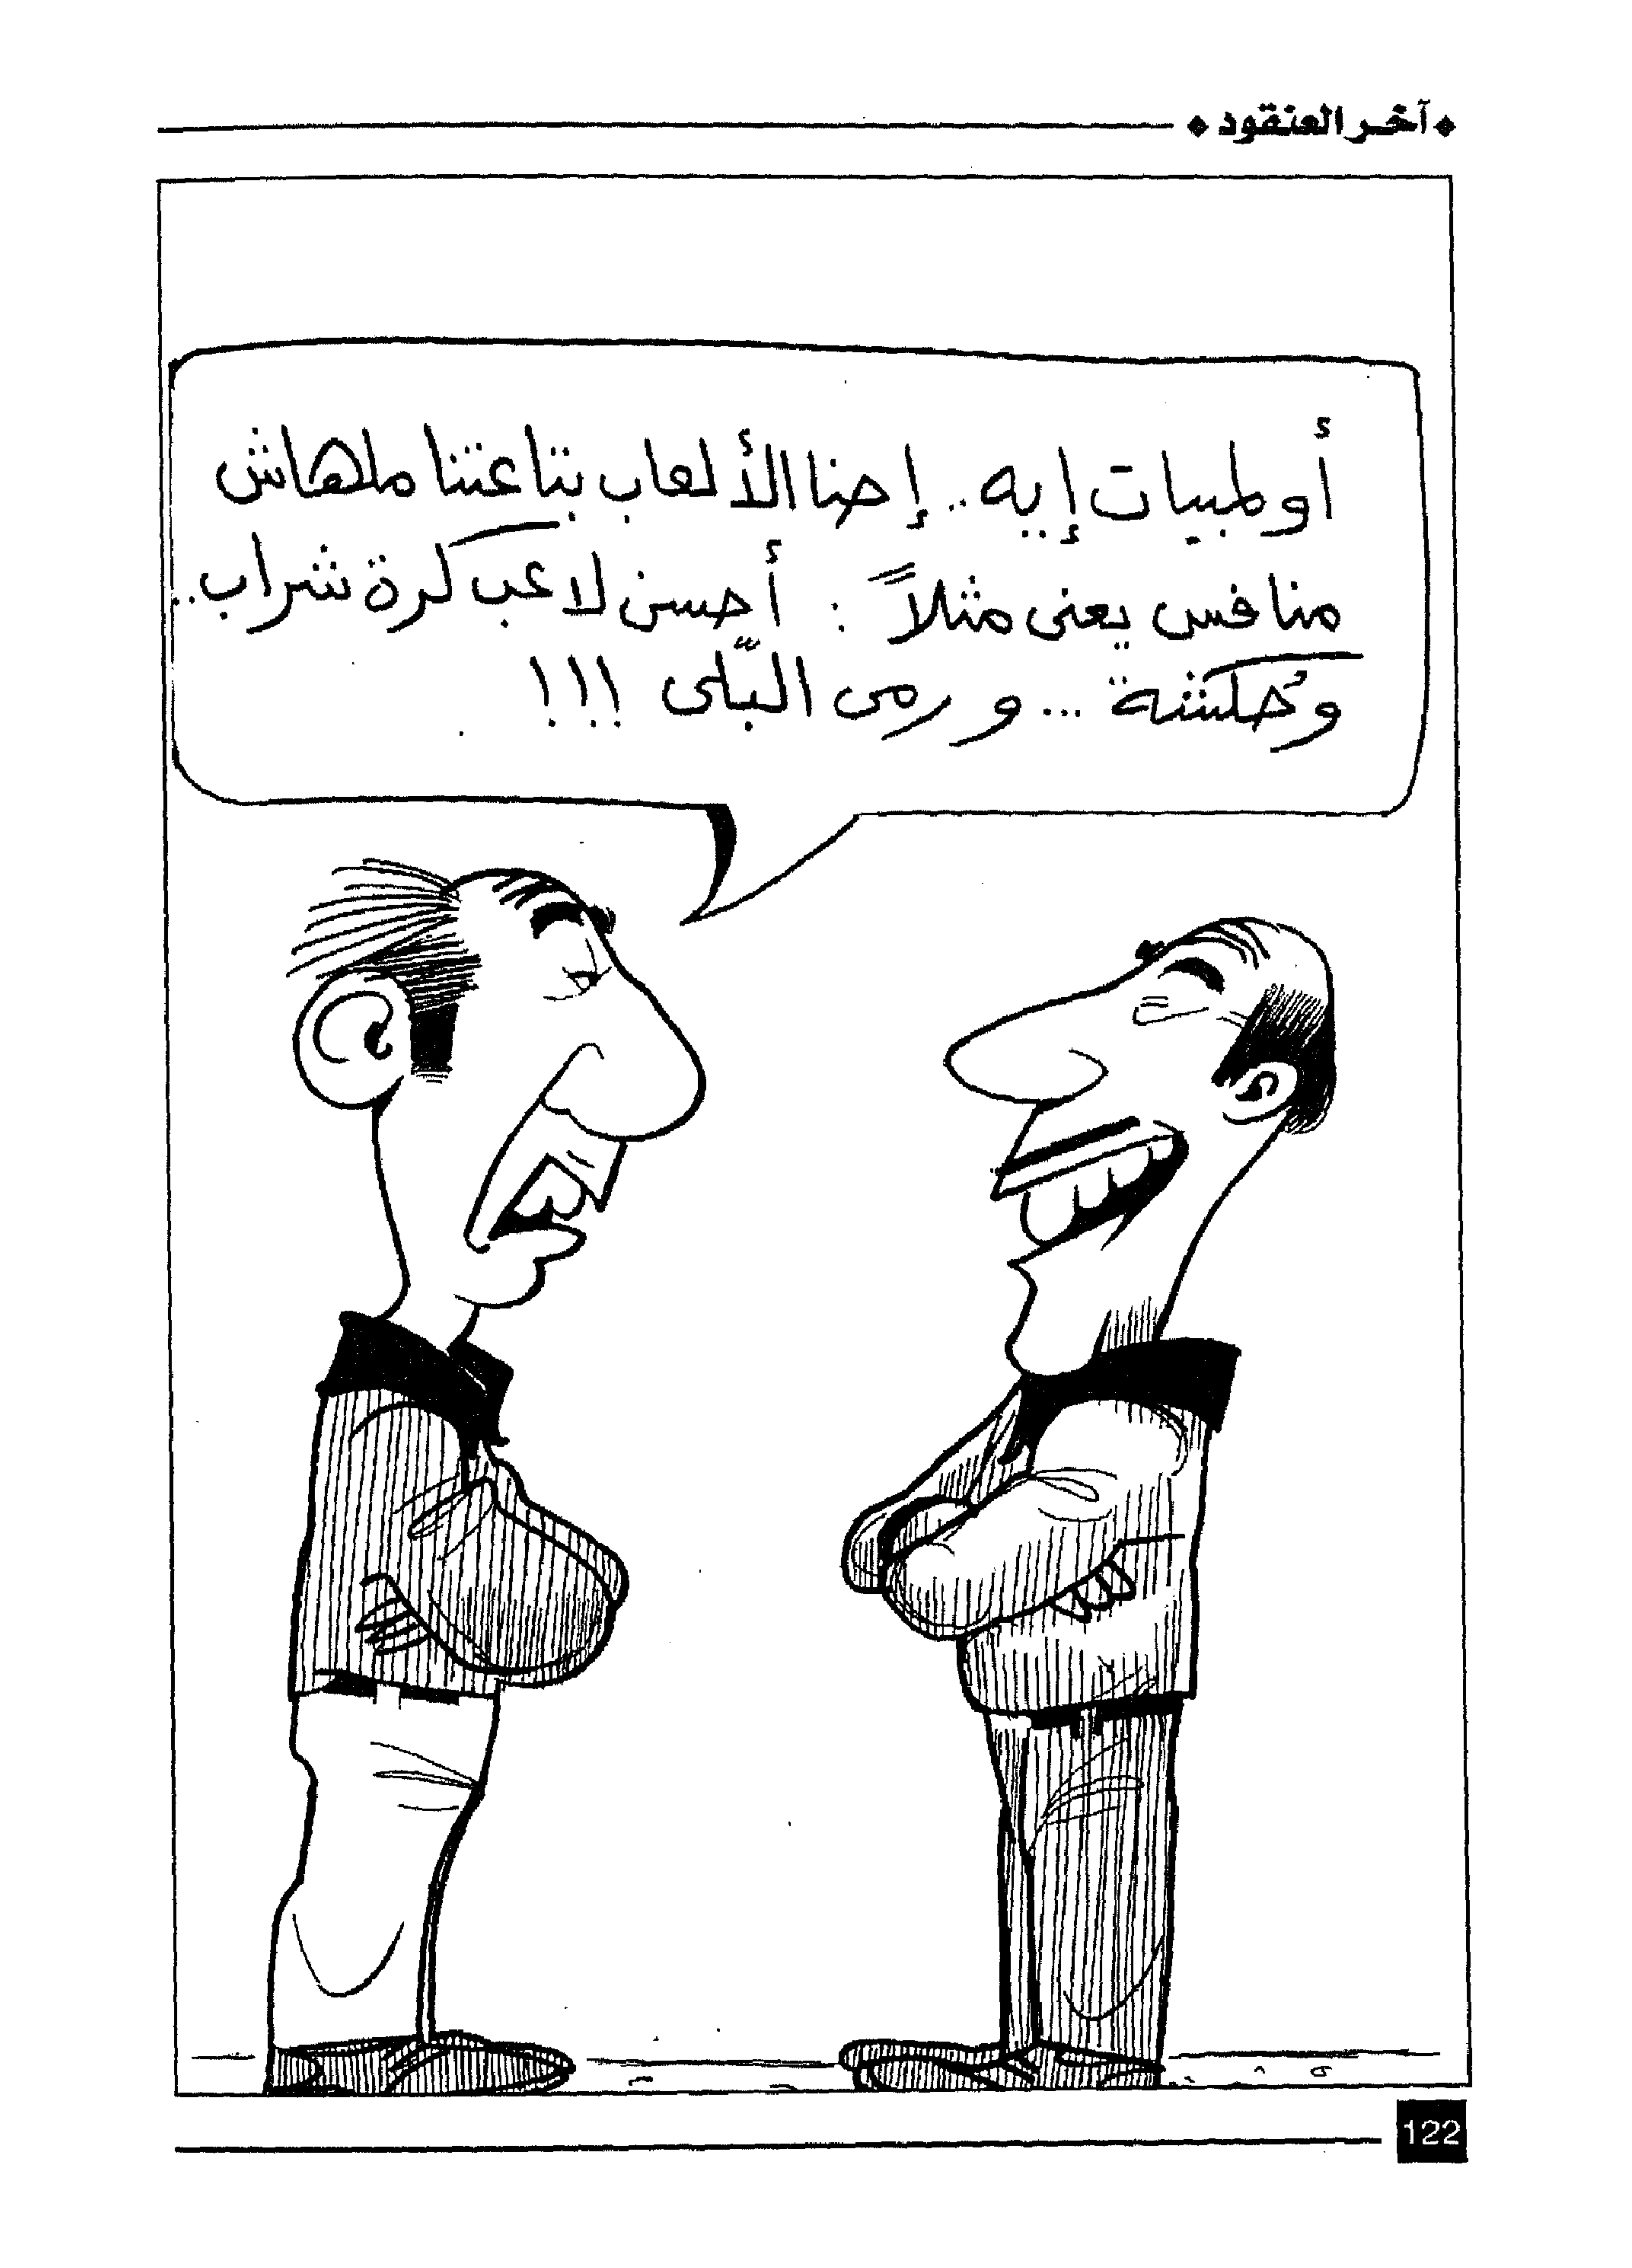 آخر العنقود
أولمبيات إيه.. إحنا الألعاب بتاعتنا ملهاش
منافس يعنى مثلاً : أحسن لاعب كرة شراب..
وحُكشة ... و رمى البّلى !!!
122